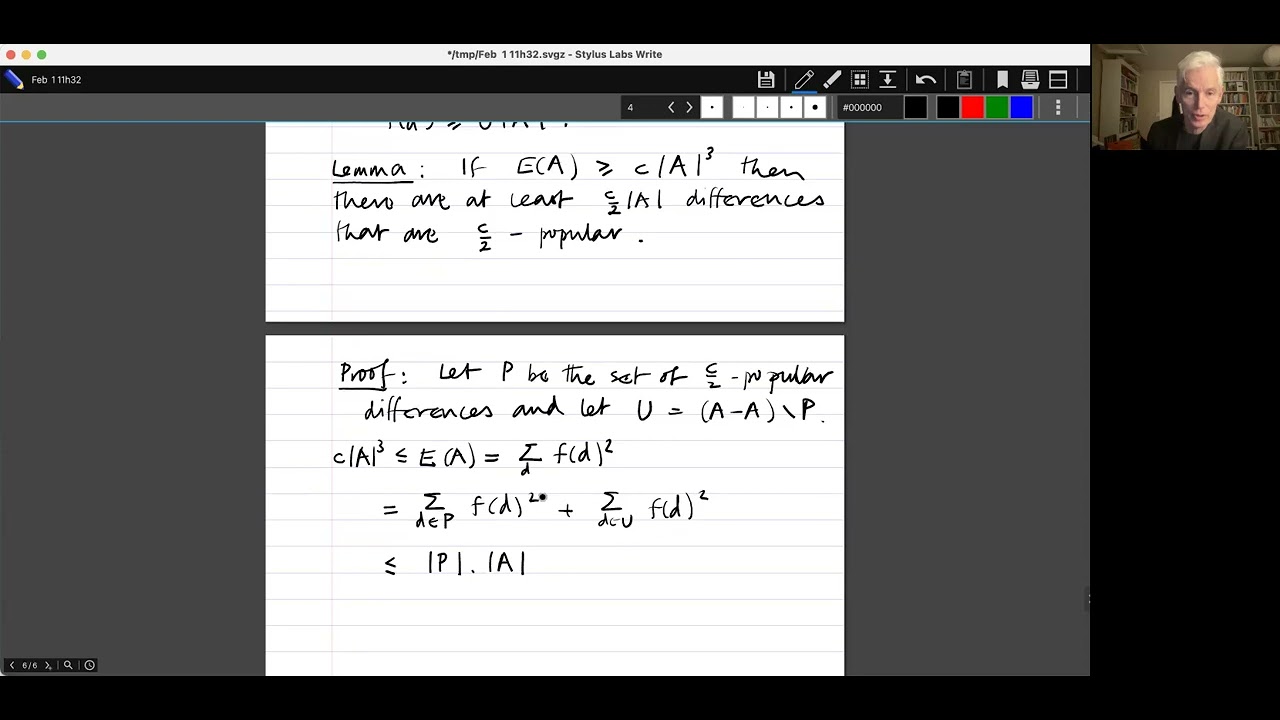 */tmp/Feb 1 11h32.svgz - Stylus Labs Write
Feb 1 11h32
4
#000000
Lemma: If E(A) ⩾ c|A|³ then
there are at least c/2 |A| differences
that are c/2 - popular.
Proof: Let P be the set of c/2 -popular
differences and let U = (A-A) \ P.
c|A|³ ≤ E(A) = Σ_d f(d)²
= Σ_{d∈P} f(d)² + Σ_{d∈U} f(d)²
≤ |P| . |A|
6/6